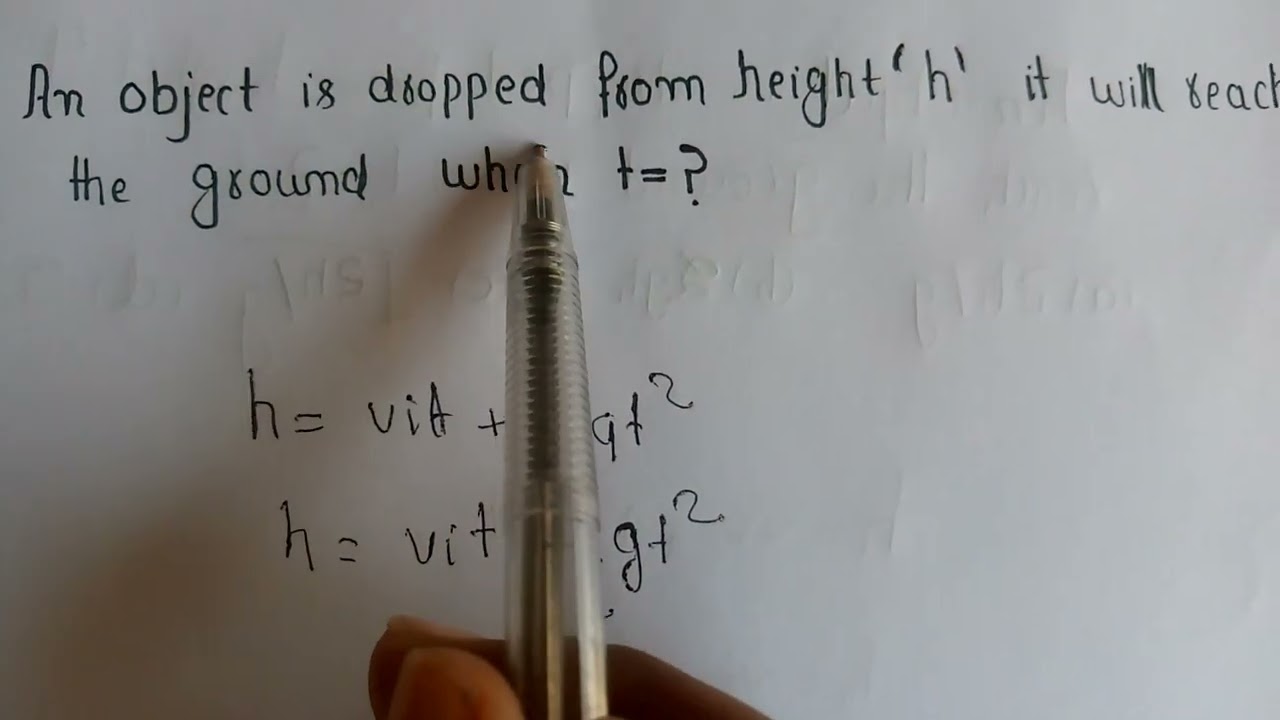 An object is dropped from height 'h' it will reach
the ground when t=?
h = vit + gt²
h = vit gt²